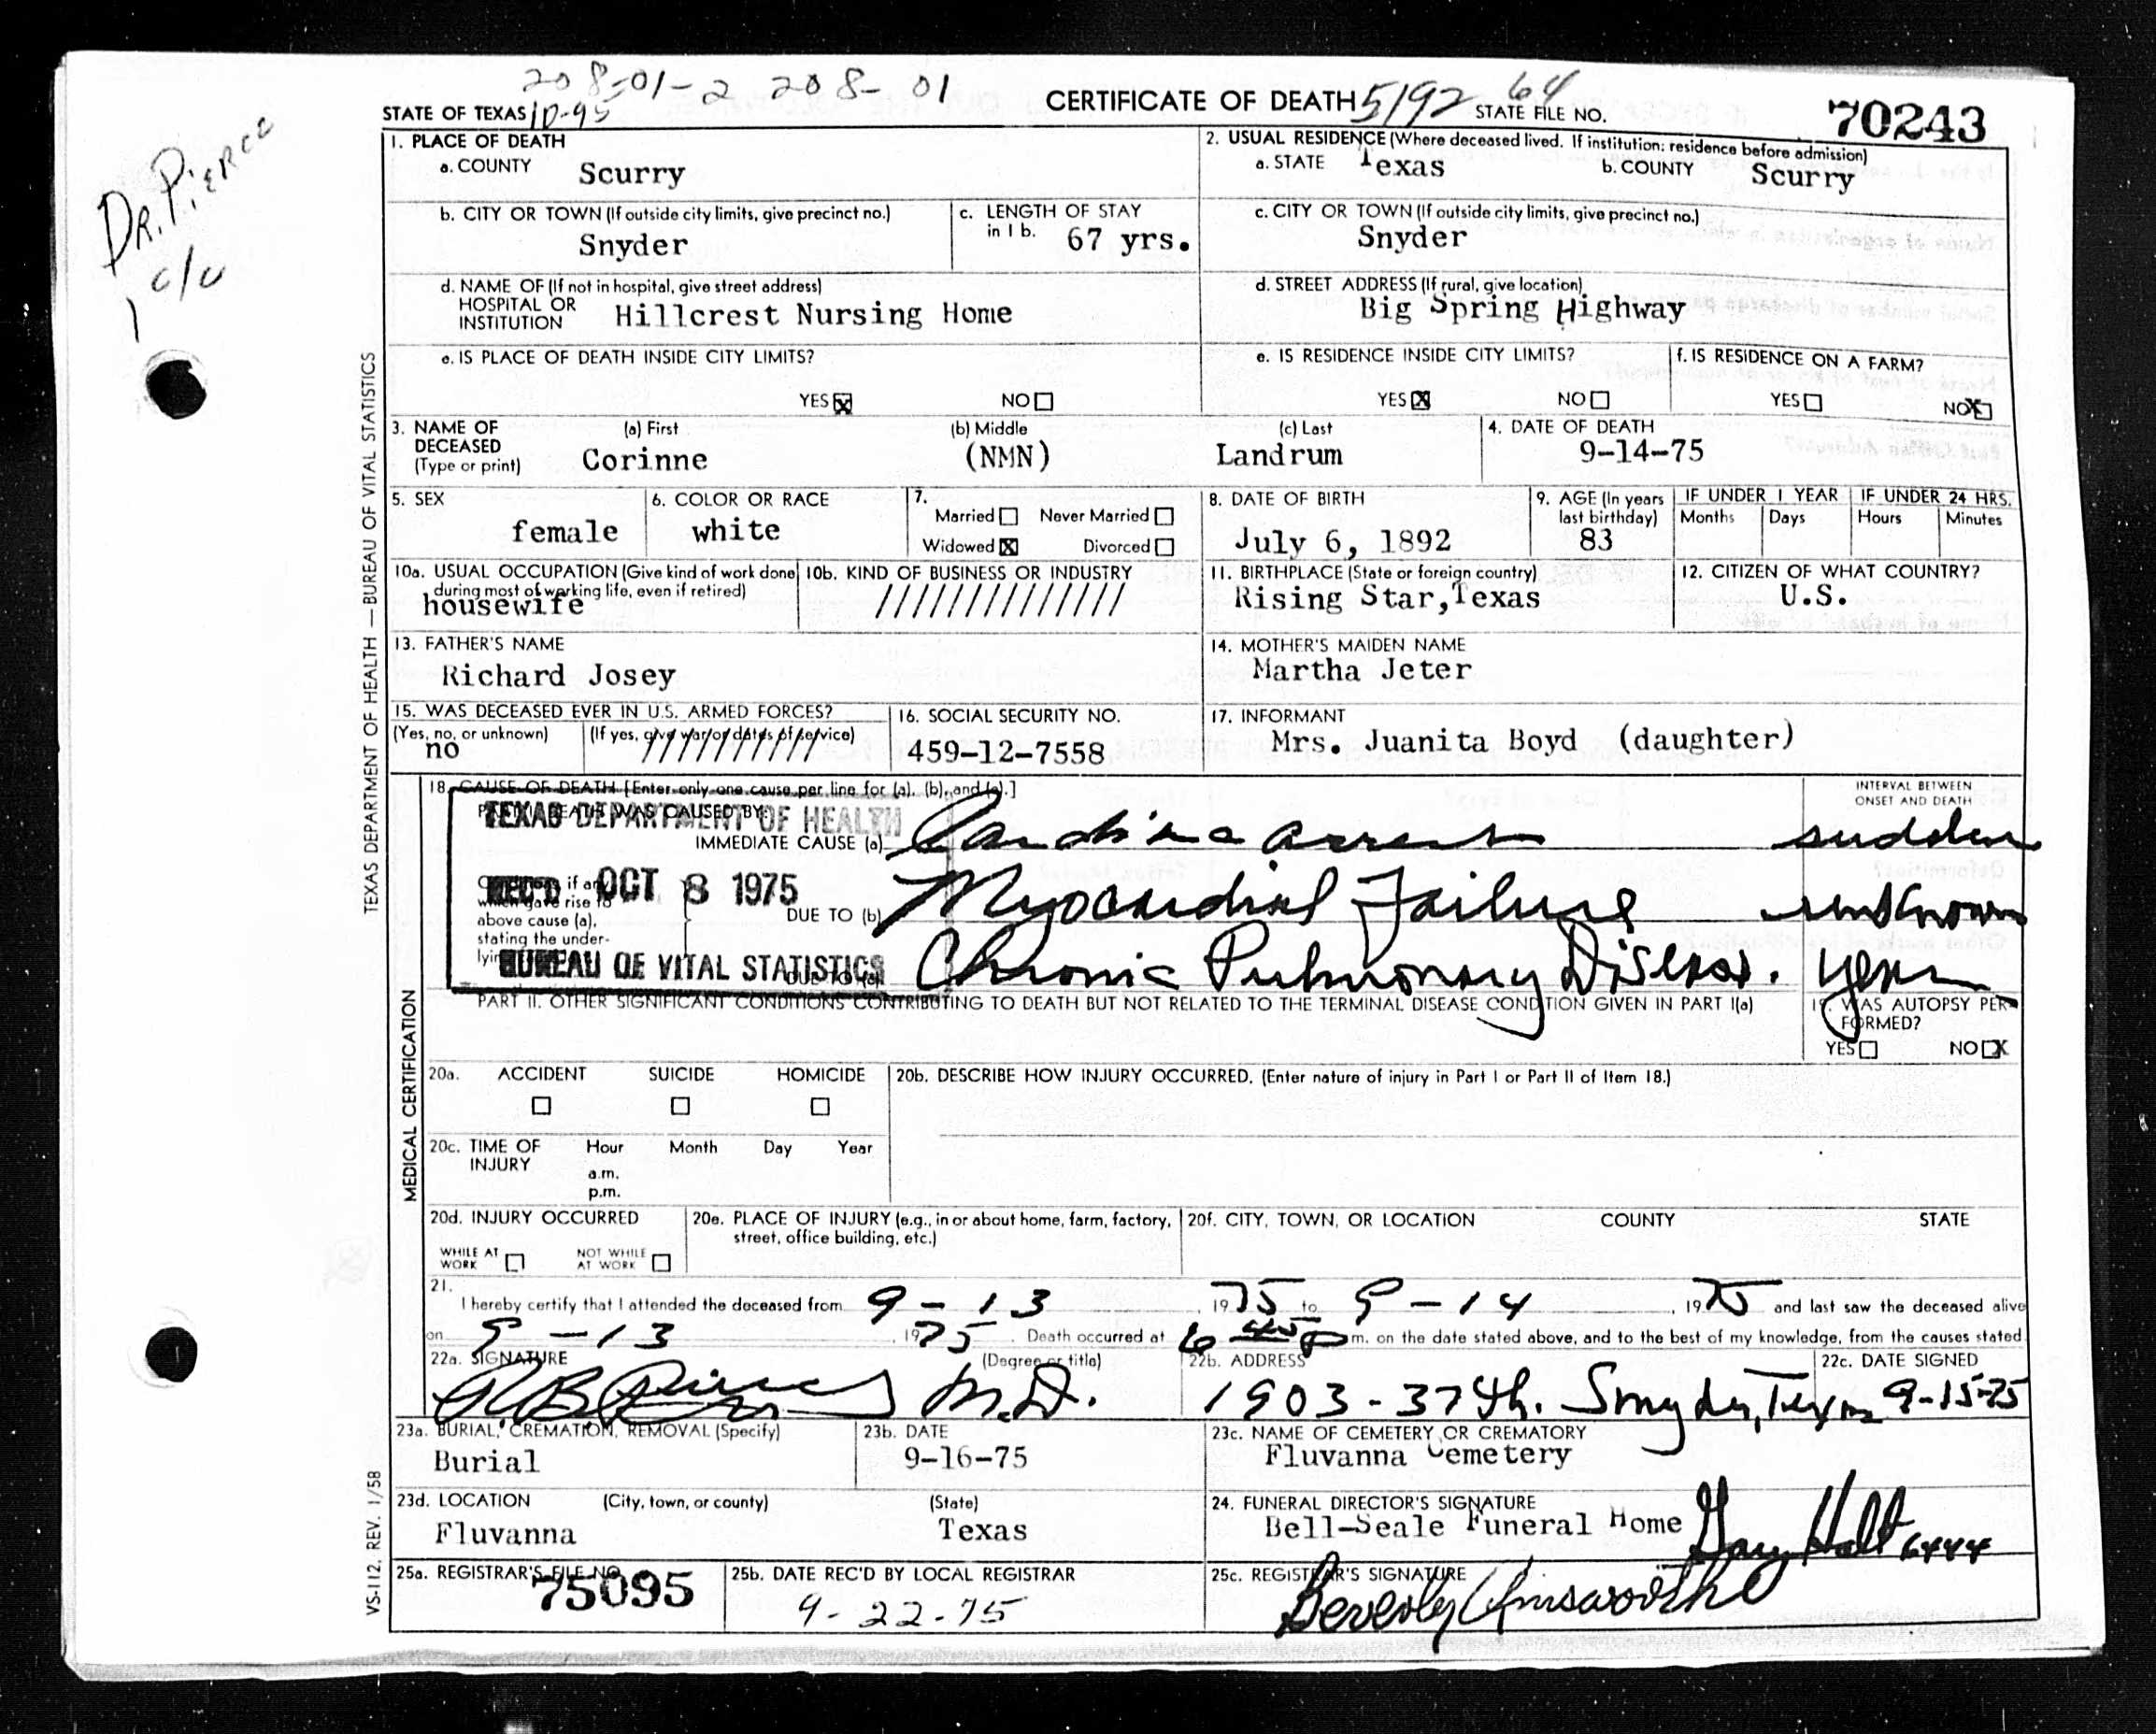 208-01-2 208-01
STATE OF TEXAS 10-95 CERTIFICATE OF DEATH 5192 64 STATE FILE NO. 70243
DR. PIERCE
1 c/c
TEXAS DEPARTMENT OF HEALTH — BUREAU OF VITAL STATISTICS
1. PLACE OF DEATH
a. COUNTY Scurry
2. USUAL RESIDENCE (Where deceased lived. If institution: residence before admission)
a. STATE Texas b. COUNTY Scurry
b. CITY OR TOWN (If outside city limits, give precinct no.)
Snyder
c. LENGTH OF STAY
in 1 b. 67 yrs.
c. CITY OR TOWN (If outside city limits, give precinct no.)
Snyder
d. NAME OF (If not in hospital, give street address)
HOSPITAL OR
INSTITUTION Hillcrest Nursing Home
d. STREET ADDRESS (If rural, give location)
Big Spring Highway
e. IS PLACE OF DEATH INSIDE CITY LIMITS?
YES X NO
e. IS RESIDENCE INSIDE CITY LIMITS?
YES X NO
f. IS RESIDENCE ON A FARM?
YES NO X
3. NAME OF
DECEASED
(Type or print)
(a) First (b) Middle (c) Last
Corinne (NMN) Landrum
4. DATE OF DEATH
9-14-75
5. SEX
female
6. COLOR OR RACE
white
7.
Married Never Married
Widowed X Divorced
8. DATE OF BIRTH
July 6, 1892
9. AGE (In years
last birthday)
83
IF UNDER 1 YEAR IF UNDER 24 HRS.
Months Days Hours Minutes
10a. USUAL OCCUPATION (Give kind of work done
during most of working life, even if retired)
housewife
10b. KIND OF BUSINESS OR INDUSTRY
//////////////
11. BIRTHPLACE (State or foreign country)
Rising Star,Texas
12. CITIZEN OF WHAT COUNTRY?
U.S.
13. FATHER'S NAME
Richard Josey
14. MOTHER'S MAIDEN NAME
Martha Jeter
15. WAS DECEASED EVER IN U.S. ARMED FORCES?
(Yes, no, or unknown) (If yes, give war or dates of service)
no ///////////
16. SOCIAL SECURITY NO.
459-12-7558
17. INFORMANT
Mrs. Juanita Boyd (daughter)
MEDICAL CERTIFICATION
18. CAUSE OF DEATH [Enter only one cause per line for (a), (b), and (c).]
INTERVAL BETWEEN
ONSET AND DEATH
DEATH WAS CAUSED BY:
TEXAS DEPARTMENT OF HEALTH
IMMEDIATE CAUSE (a) Cardiac arrest sudden
REC'D OCT 8 1975
Conditions, if any
which gave rise to
above cause (a),
stating the under-
lying
DUE TO (b) Myocardial Failure unknown
BUREAU OF VITAL STATISTICS
DUE TO (c) Chronic Pulmonary Disease. years
PART II. OTHER SIGNIFICANT CONDITIONS CONTRIBUTING TO DEATH BUT NOT RELATED TO THE TERMINAL DISEASE CONDITION GIVEN IN PART I(a)
19. WAS AUTOPSY PER-
FORMED?
YES NO X
20a. ACCIDENT SUICIDE HOMICIDE
20b. DESCRIBE HOW INJURY OCCURRED. (Enter nature of injury in Part I or Part II of Item 18.)
20c. TIME OF
INJURY
Hour Month Day Year
a.m.
p.m.
20d. INJURY OCCURRED
WHILE AT
WORK
NOT WHILE
AT WORK
20e. PLACE OF INJURY (e.g., in or about home, farm, factory,
street, office building, etc.)
20f. CITY, TOWN, OR LOCATION COUNTY STATE
21.
I hereby certify that I attended the deceased from 9-13, 1975 to 9-14, 1975 and last saw the deceased alive
on 9-13, 1975. Death occurred at 6 45 P m. on the date stated above, and to the best of my knowledge, from the causes stated.
22a. SIGNATURE (Degree or title)
RB Pierce M.D.
22b. ADDRESS
1903-37th. Snyder, Texas
22c. DATE SIGNED
9-15-75
23a. BURIAL, CREMATION, REMOVAL (Specify)
Burial
23b. DATE
9-16-75
23c. NAME OF CEMETERY OR CREMATORY
Fluvanna Cemetery
23d. LOCATION (City, town, or county) (State)
Fluvanna Texas
24. FUNERAL DIRECTOR'S SIGNATURE
Bell-Seale Funeral Home Gary Holt 6444
25a. REGISTRAR'S FILE NO.
75095
25b. DATE REC'D BY LOCAL REGISTRAR
9-22-75
25c. REGISTRAR'S SIGNATURE
Beverly Ainsworth
VS-112, REV. 1/58